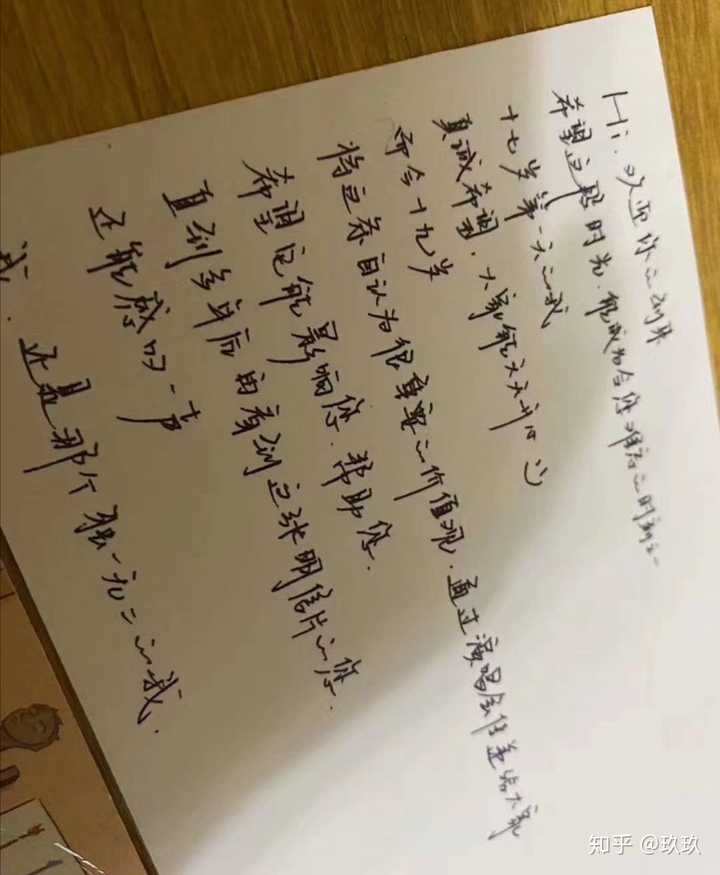 Hi. 欢迎你的到来
希望这段时光. 能成为令您难忘的时刻之一
十七岁第一天的我
真诚希望. 大家能天天开心 :)
而今十九岁
将这有自认为很重要的价值观. 通过演唱会传递给大家
希望它能影响您. 帮助您.
直到多年后 再看到这张明信片的您.
还能感叹一声
还是那个独一无二的我.
我.
知乎 @玖玖